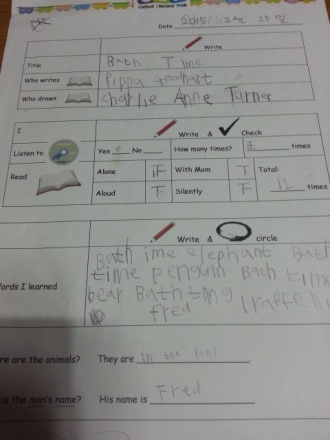 Oxford Literacy Club
Date 2015
Write
Title Bath Time
Who writes Pippa Goodhart
Who draws Charlie Anne Turner
I Write & Check
Listen to Yes o No How many times? 正 times
Read Alone 正 With Mom 下 Total:
Aloud 下 Silently 下 times
Write & circle
Words I learned Bath ime elephant Bath
time penguin Bath time
bear Bath
fred
re are the animals? They are in the
is the man's name? His name is Fred